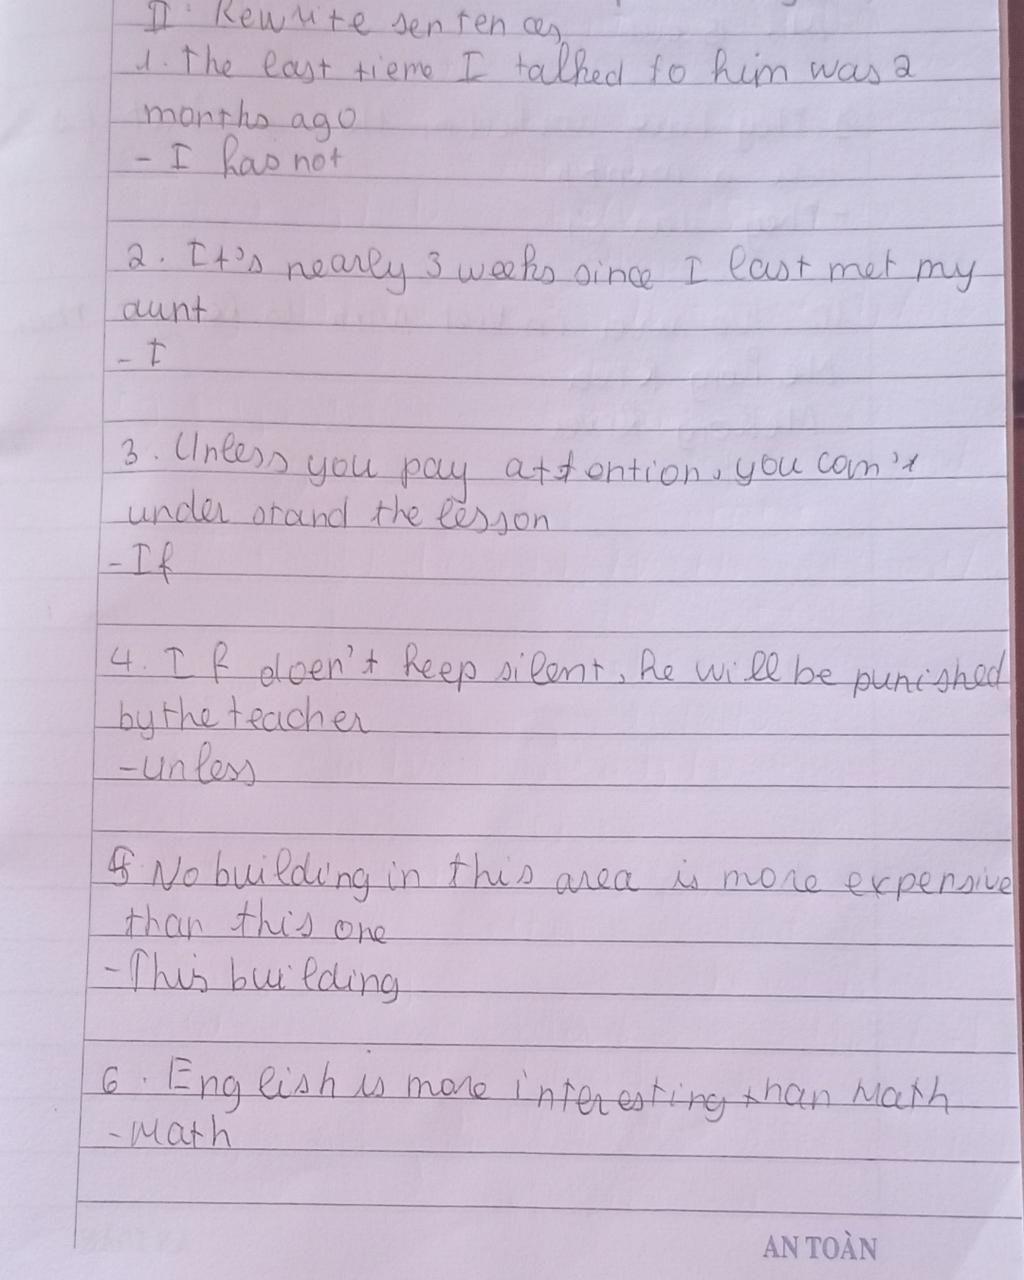 II. Rewrite sentences
1. The last tieme I talked to him was 2
months ago
- I has not
2. It's nearly 3 weeks since I last met my
aunt
- I
3. Unless you pay attention, you can't
understand the lesson
- If
4. If doen't keep silent, he will be punished
by the teacher
- unless
5 No building in this area is more expensive
than this one
- This building
6. English is more interesting than Math
- Math
AN TOÀN